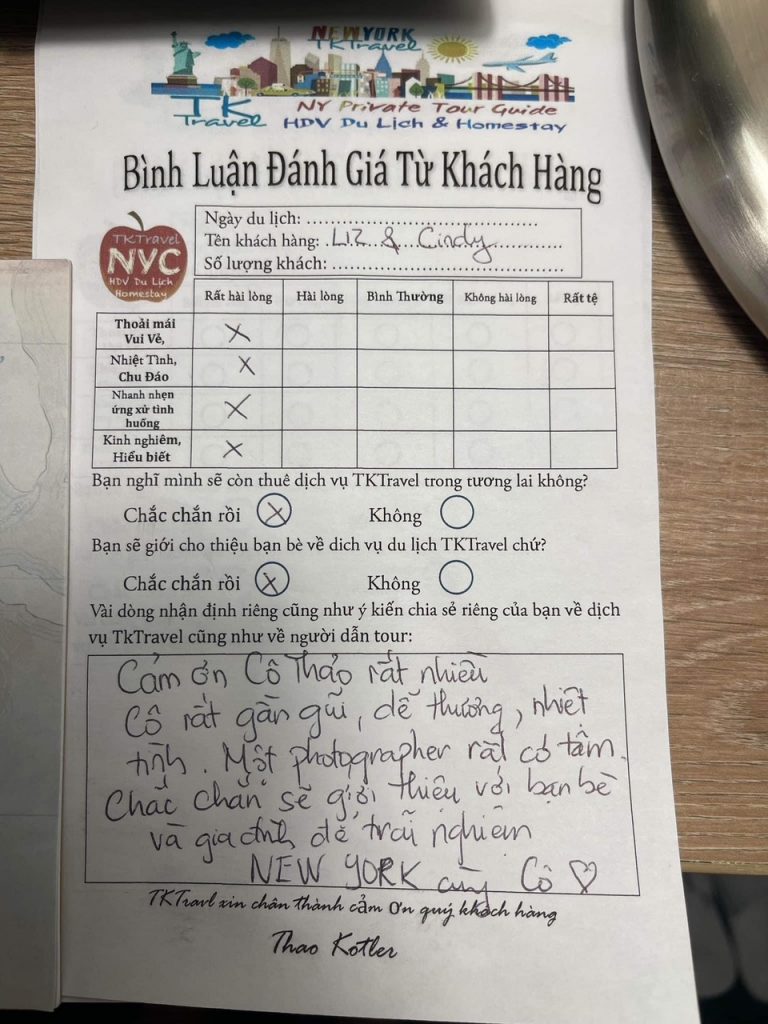 NEWYORK
TKTravel
TK
Travel
NY Private Tour Guide
HDV Du Lich & Homestay
Bình Luận Đánh Giá Từ Khách Hàng
TKTravel
NYC
HDV Du Lich
Homestay
Ngày du lịch: ........................................
Tên khách hàng: Liz & Cindy
Số lượng khách: ........................................
Rất hài lòng Hài lòng Bình Thường Không hài lòng Rất tệ
Thoải mái
Vui Vẻ, X
Nhiệt Tình,
Chu Đáo X
Nhanh nhẹn
ứng xử tình
huống X
Kinh nghiêm,
Hiểu biết X
Bạn nghĩ mình sẽ còn thuê dịch vụ TKTravel trong tương lai không?
Chắc chắn rồi X Không
Bạn sẽ giới cho thiệu bạn bè về dich vụ du lịch TKTravel chứ?
Chắc chắn rồi X Không
Vài dòng nhận định riêng cũng như ý kiến chia sẻ riêng của bạn về dịch
vụ TkTravel cũng như về người dẫn tour:
Cảm ơn Cô Thảo rất nhiều
Cô rất gần gũi, dễ thương, nhiệt
tình. Một photographer rất có tâm.
Chắc chắn sẽ giới thiệu với bạn bè
và gia đình để trãi nghiệm
NEW YORK cùng Cô ♡
TKTravl xin chân thành cảm ơn quý khách hàng
Thao Kotler